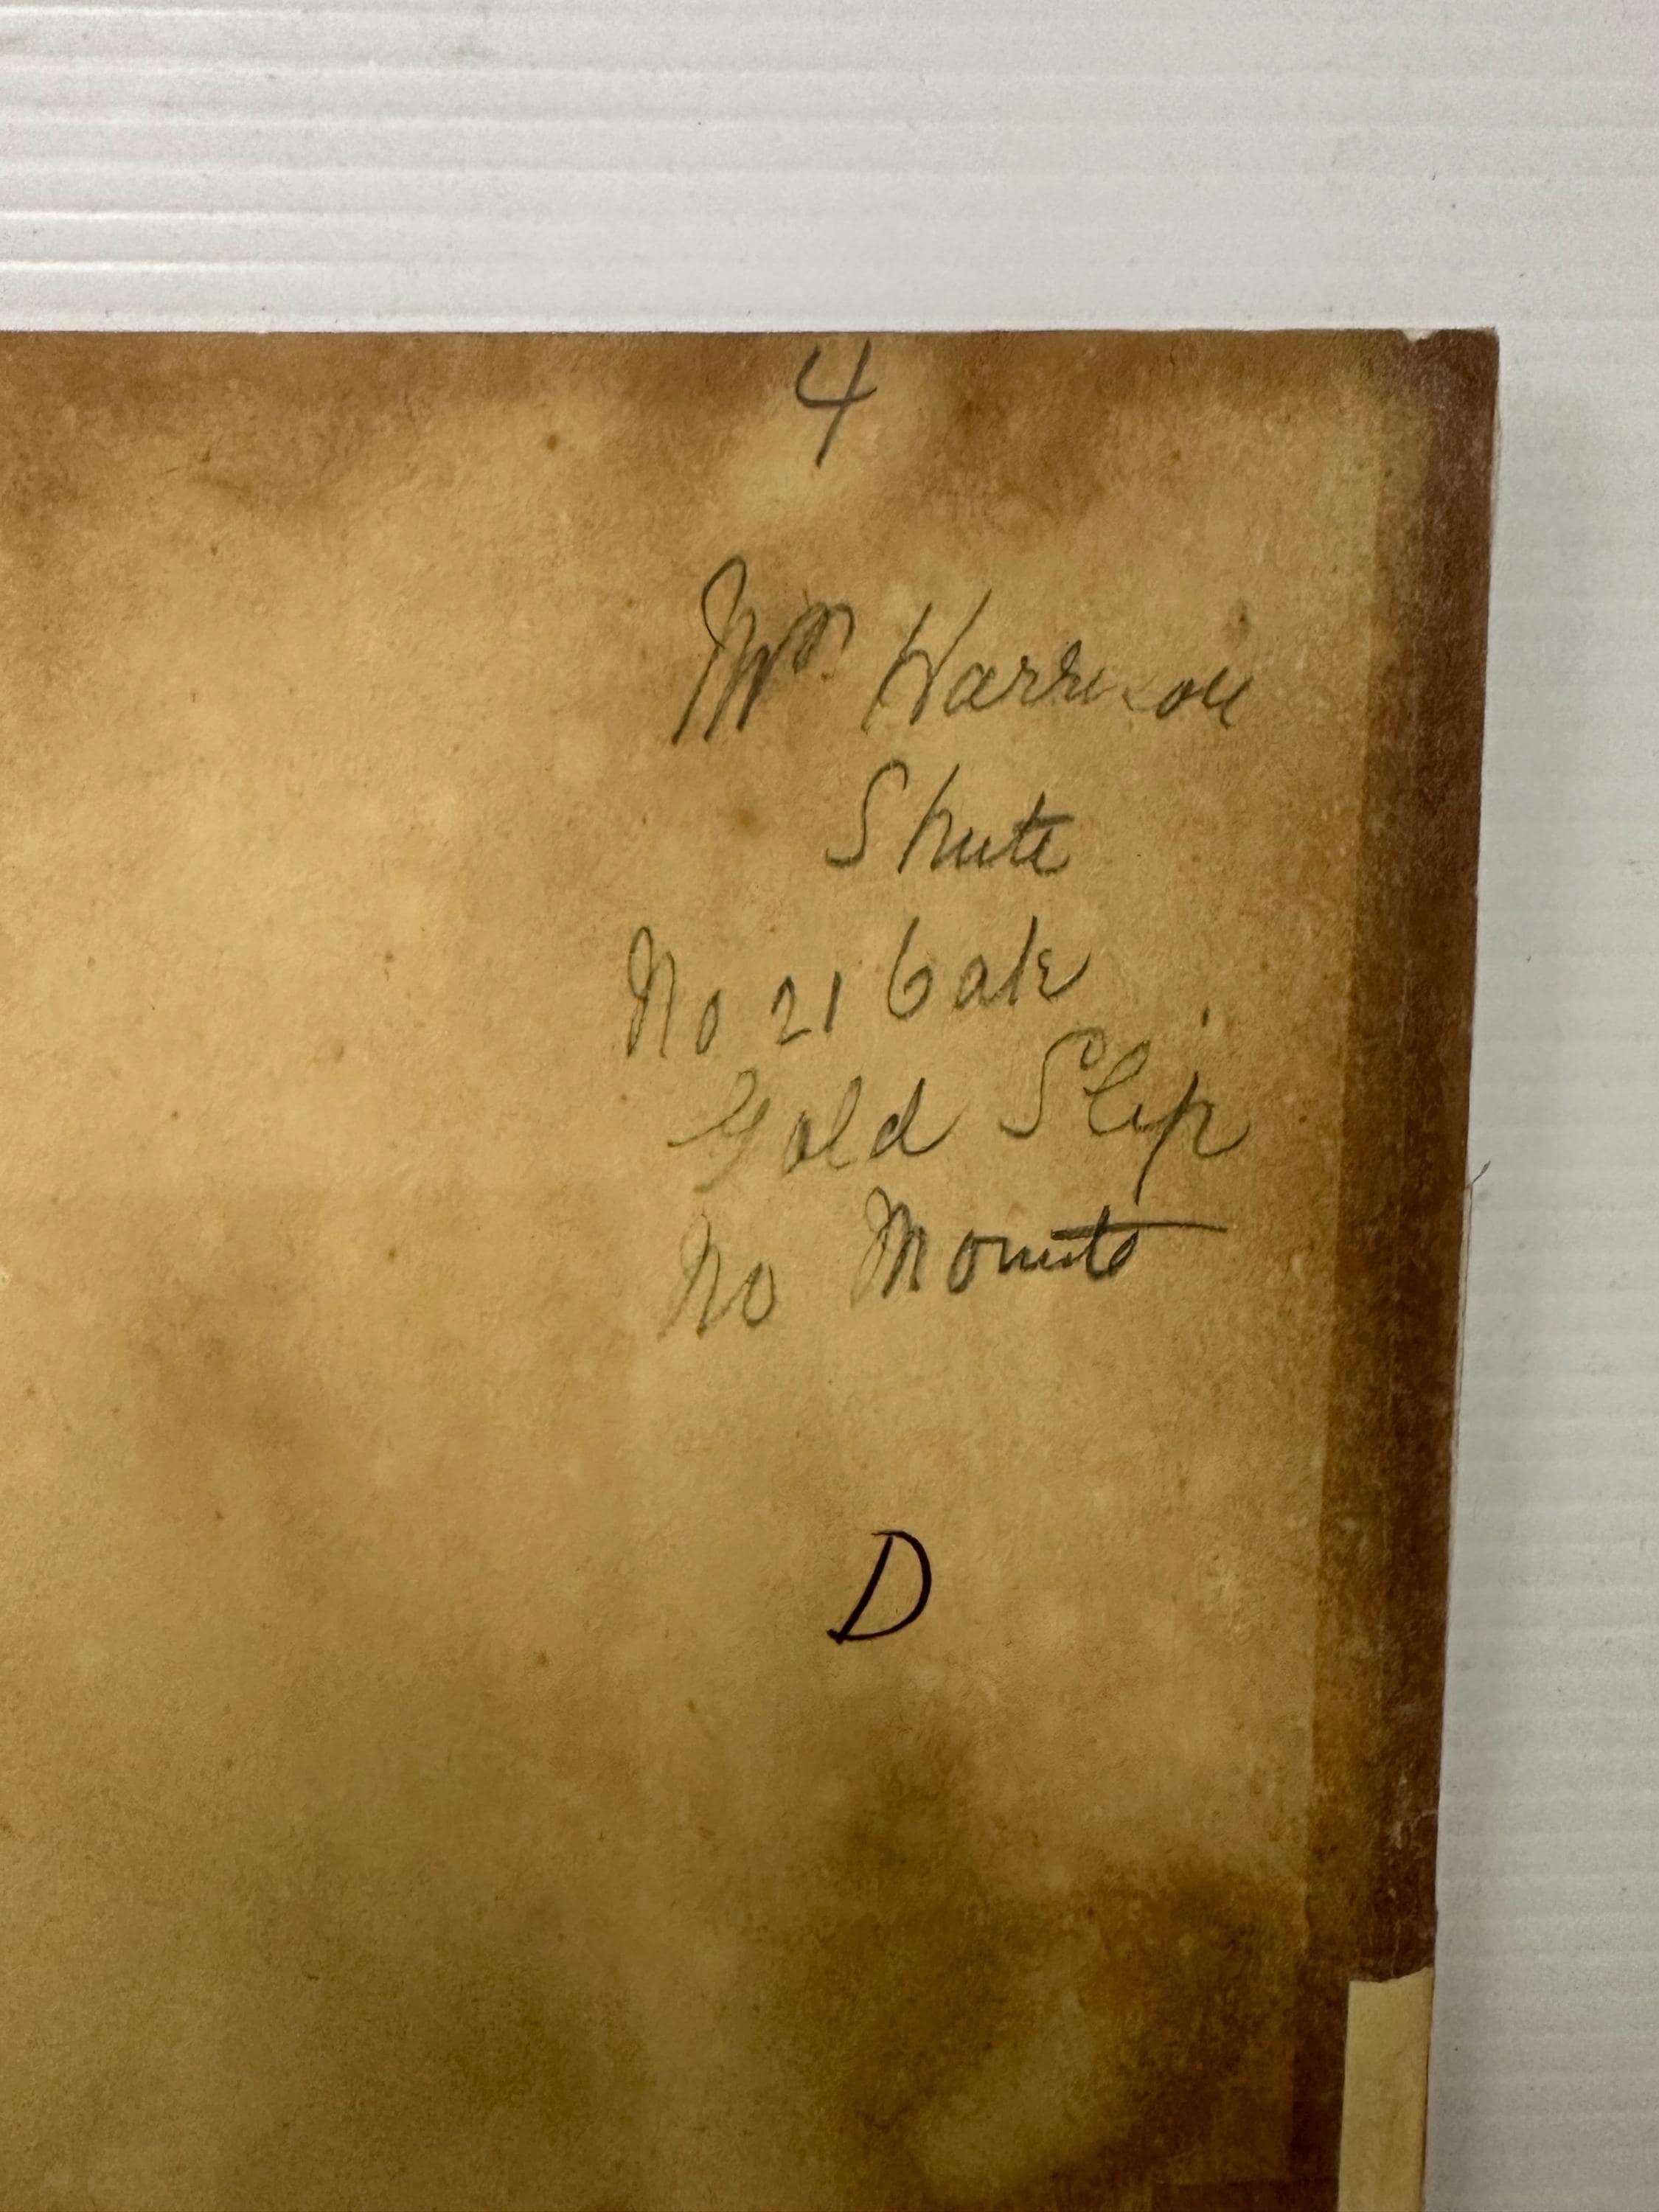 4
Mrs. Harrison
Shute
No 21 Oak
Gold Slip
No Mounts
D